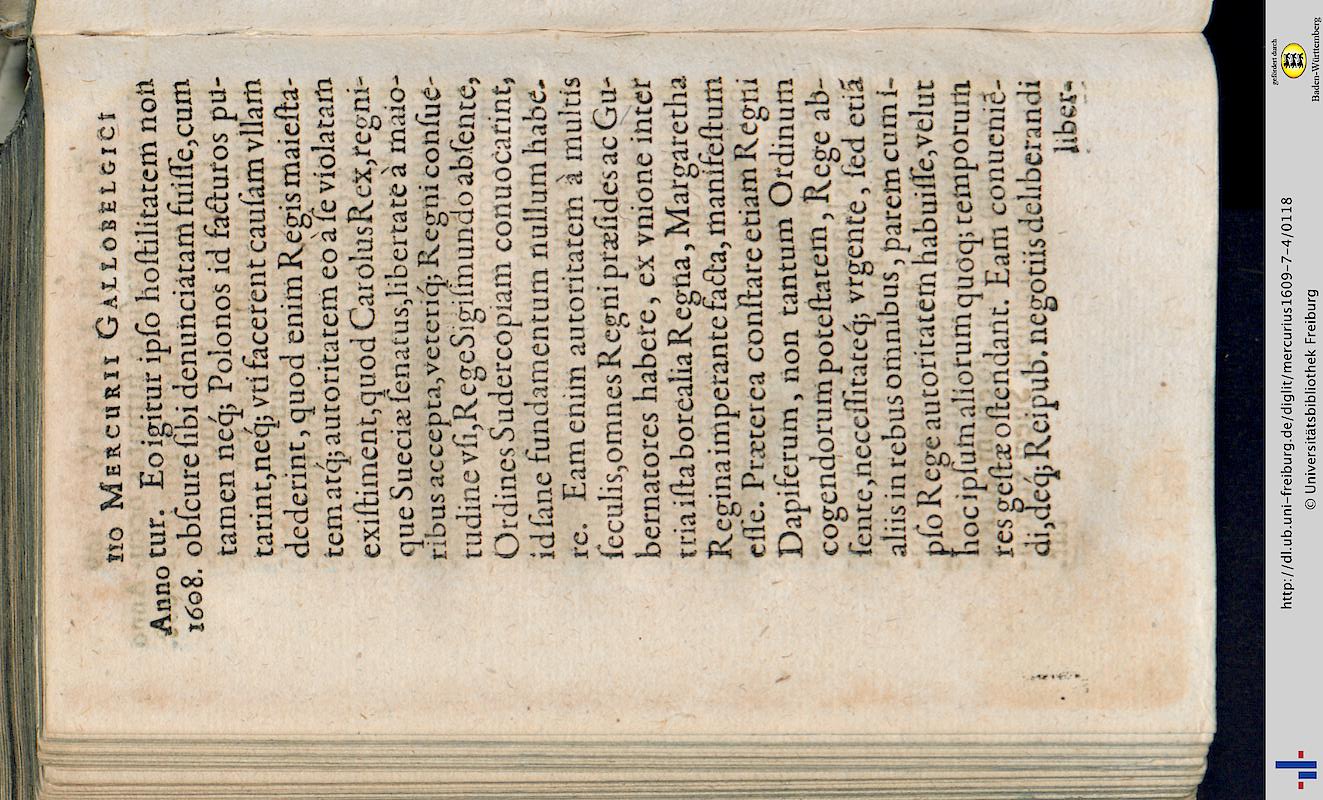 110 MERCURII GALLOBELGICI
Anno tur. Eo igitur ipſo hoſtilitatem non
1608. obſcure ſibi denunciatam fuiſſe, cum
tamen neq́; Polonos id facturos pu-
tarint, neq́; vti facerent cauſam vllam
dederint, quod enim Regis maieſta-
tem atq́; autoritatem eò à ſe violatam
exiſtiment, quod Carolus Rex, regni-
que Sueciæ ſenatus, libertate à maio-
ribus accepta, veteriq́; Regni conſue-
tudine vſi, Rege Sigiſmundo abſente,
Ordines Sudercopiam conuocarint,
id ſane fundamentum nullum habe-
re. Eam enim autoritatem à multis
ſeculis, omnes Regni præſides ac Gu-
bernatores habere, ex vnione inter
tria iſta borealia Regna, Margaretha
Regina imperante facta, manifeſtum
eſſe. Præterea conſtare etiam Regni
Dapiferum, non tantum Ordinum
cogendorum poteſtatem, Rege ab-
ſente, neceſſitateq́; vrgente, ſed etiā
aliis in rebus omnibus, parem cum i-
pſo Rege autoritatem habuiſſe, velut
hoc ipſum aliorum quoq; temporum
res geſtæ oſtendant. Eam conueniē-
di, deq́; Reipub. negotiis deliberandi
liber-
gefördert durch
Baden-Württemberg
http://dl.ub.uni-freiburg.de/diglit/mercurius1609-7-4/0118
© Universitätsbibliothek Freiburg